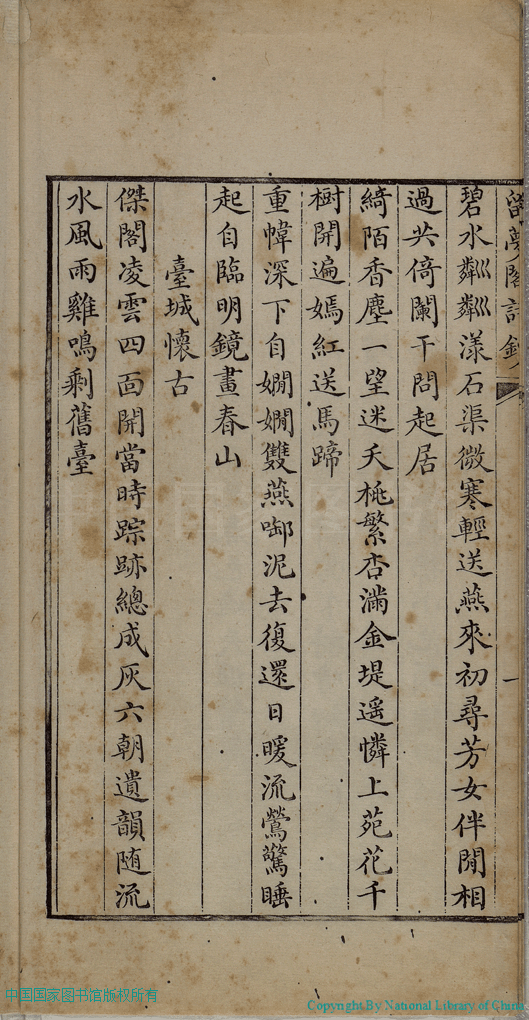 夢閣詩鈔
一
碧水粼粼漾石渠微寒輕送燕來初尋芳女伴閒相
過共倚闌干問起居
綺陌香塵一望迷夭桃繁杏滿金堤遥憐上苑花千
樹開遍嫣紅送馬蹄
重幃深下自嫺嫺雙燕啣泥去復還日暖流鶯驚睡
起自臨明鏡畫春山
臺城懷古
傑閣凌雲四面開當時踪跡總成灰六朝遺韻随流
水風雨雞鳴剩舊臺
中国国家图书馆版权所有
Copyright By National Library of China